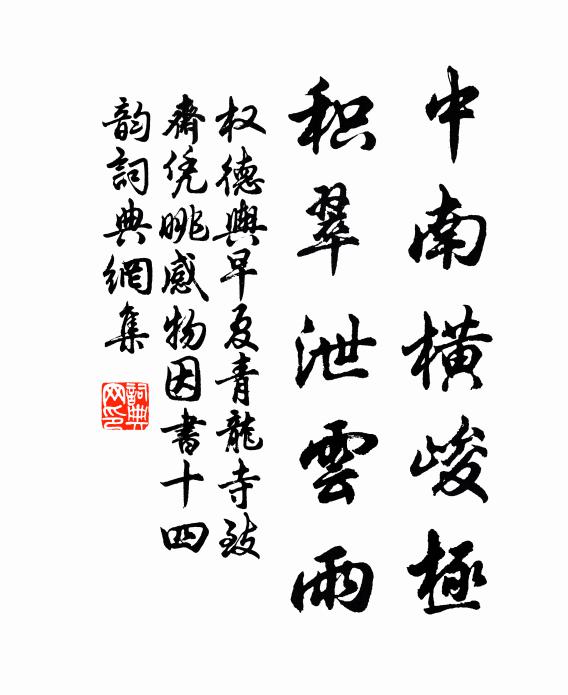 中南橫峻極
积翠泄雲雨
权德輿早夏青龍寺致
齋凭眺感物因書十四
韵詞典網集
詞典
网印